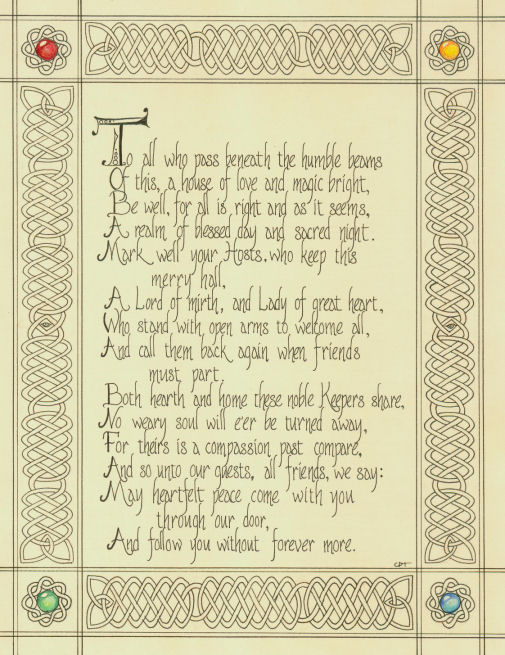 To all who pass beneath the humble beams
Of this, a house of love and magic bright,
Be well, for all is right and as it seems,
A realm of blessed day and sacred night.
Mark well your Hosts, who keep this
merry hall,
A Lord of mirth, and Lady of great heart,
Who stand with open arms to welcome all,
And call them back again when friends
must part.
Both hearth and home these noble Keepers share,
No weary soul will e'er be turned away,
For theirs is a compassion past compare,
And so unto our guests, all friends, we say:
May heartfelt peace come with you
through our door,
And follow you without forever more.